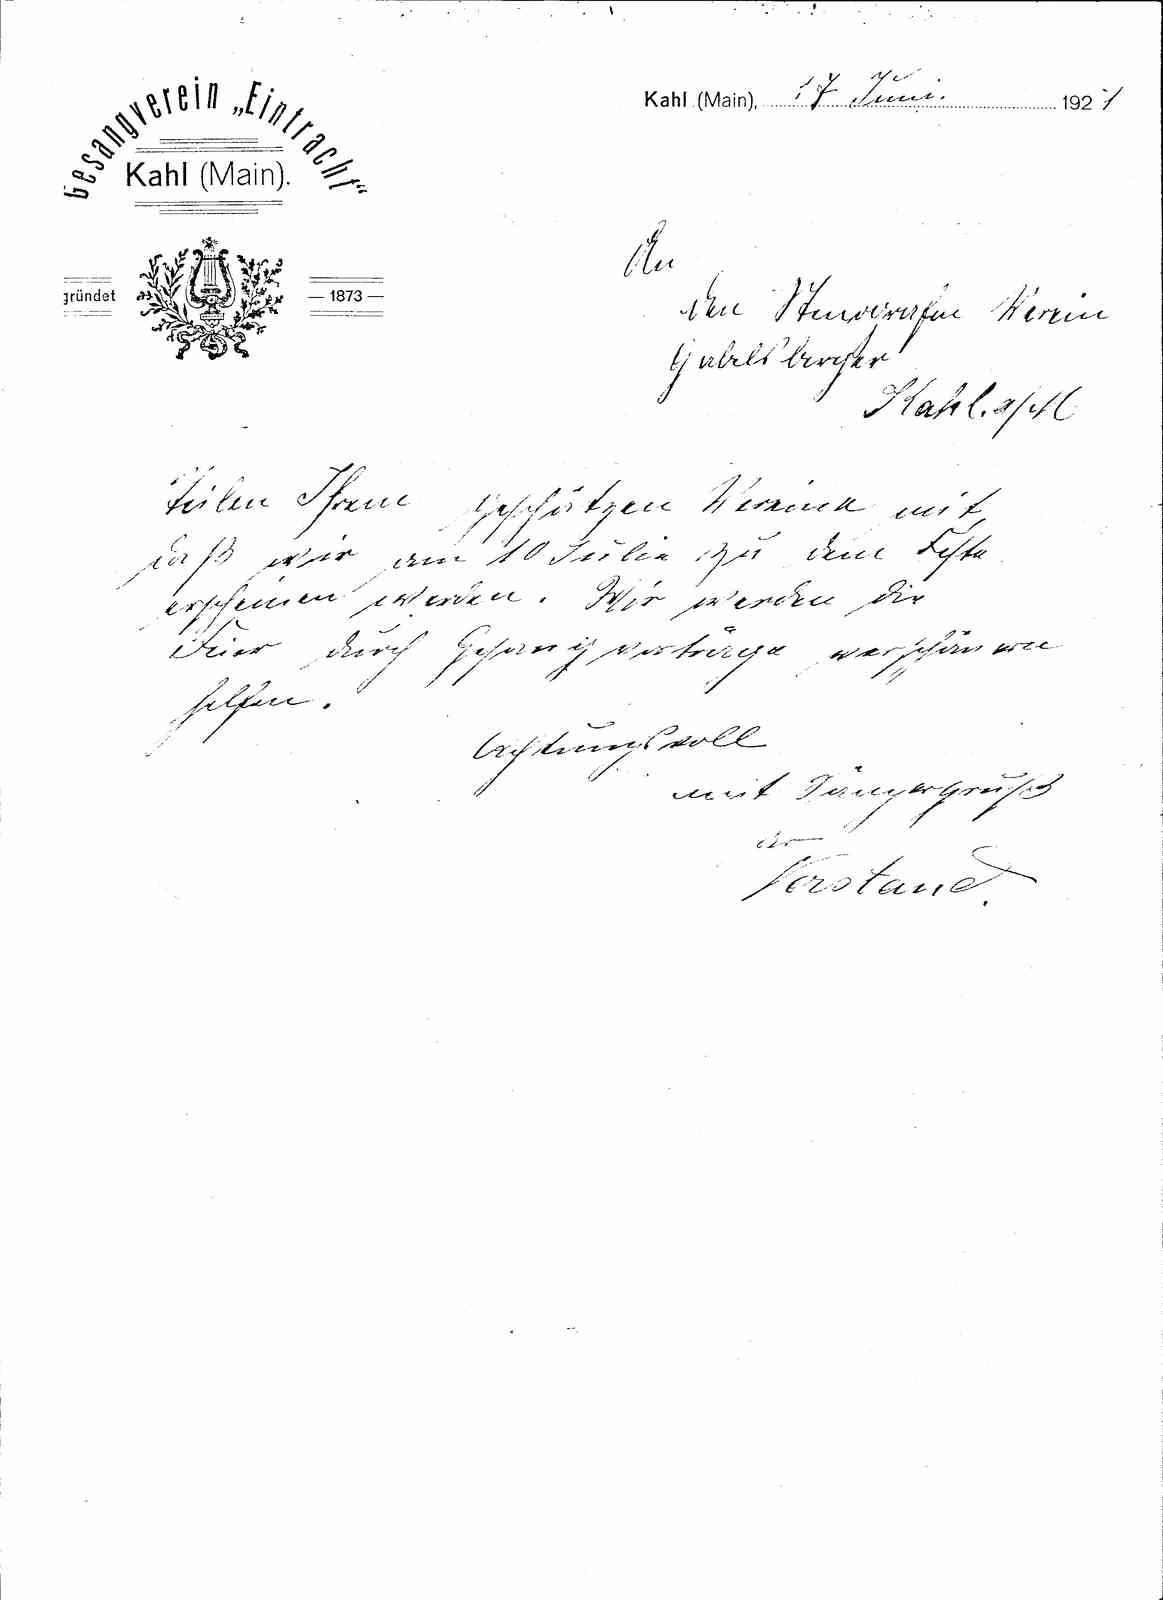 Gesangverein „Eintracht"
Kahl (Main).
gründet
— 1873 —
Kahl (Main), 17 Juni. 1921
An
den Stenografen Verein
Gabelsberger
Kahl. a/M
Teilen Ihrem geschätzen Vereine mit,
daß wir am 10 Julie zu dem Feste
erscheinen werden. Wir werden die
Feier durch Gesangvorträge verschönern
helfen.
Achtungsvoll
mit Sängergruß
der
Vorstand.